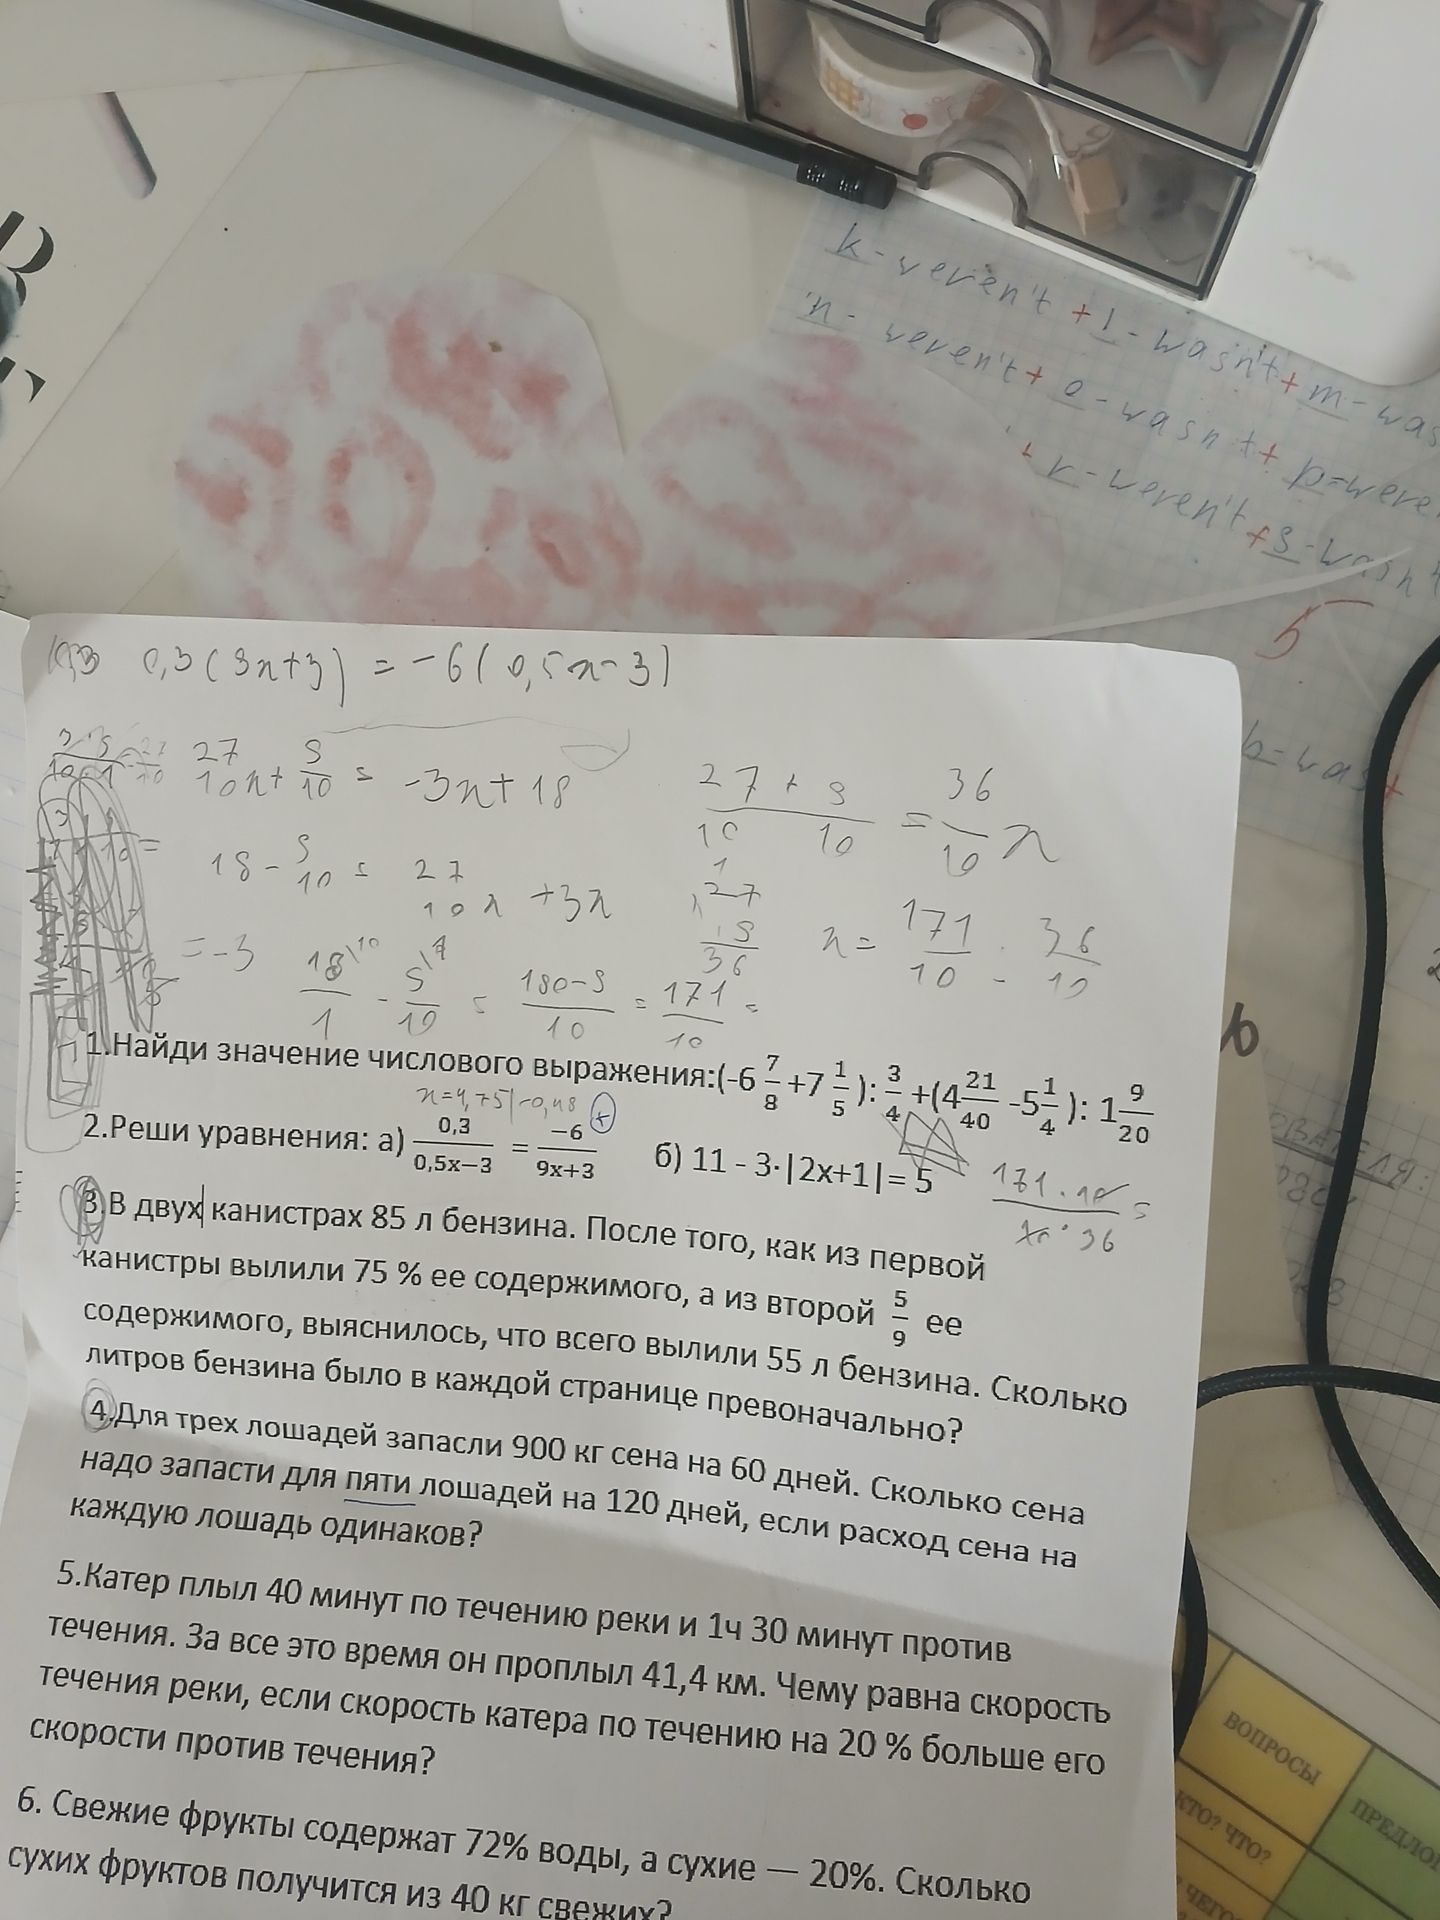 k-weren't + l-wasn't + m-was
n-weren't + o-wasn't + p=were
+ r-weren't + s-wasn't
5
b=was+
0,3(9x+3) = -6(0,5x-3)
27/10x + 9/10 = -3x+18
27/10 + 9/10 = 36/10 x
18 - 9/10 = 27/10x + 3x
27
9
36
x = 171/10 : 36/10
= -3
18/1 - 9/10 = 180-9/10 = 171/10 =
1.Найди значение числового выражения:(-6 7/8 +7 1/5 ): 3/4 +(4 21/40 -5 1/4 ): 1 9/20
x=4,75|-0,48 +
2.Реши уравнения: а) 0,3/0,5x−3 = −6/9x+3 б) 11 - 3·|2x+1|= 5
171·10/10·36 =
3.В двух канистрах 85 л бензина. После того, как из первой
канистры вылили 75 % ее содержимого, а из второй 5/9 ее
содержимого, выяснилось, что всего вылили 55 л бензина. Сколько
литров бензина было в каждой странице превоначально?
4.Для трех лошадей запасли 900 кг сена на 60 дней. Сколько сена
надо запасти для пяти лошадей на 120 дней, если расход сена на
каждую лошадь одинаков?
5.Катер плыл 40 минут по течению реки и 1ч 30 минут против
течения. За все это время он проплыл 41,4 км. Чему равна скорость
течения реки, если скорость катера по течению на 20 % больше его
скорости против течения?
6. Свежие фрукты содержат 72% воды, а сухие — 20%. Сколько
сухих фруктов получится из 40 кг свежих?
ВОПРОСЫ
ПРЕДЛОГ
КТО? ЧТО?
ЧЕГО?